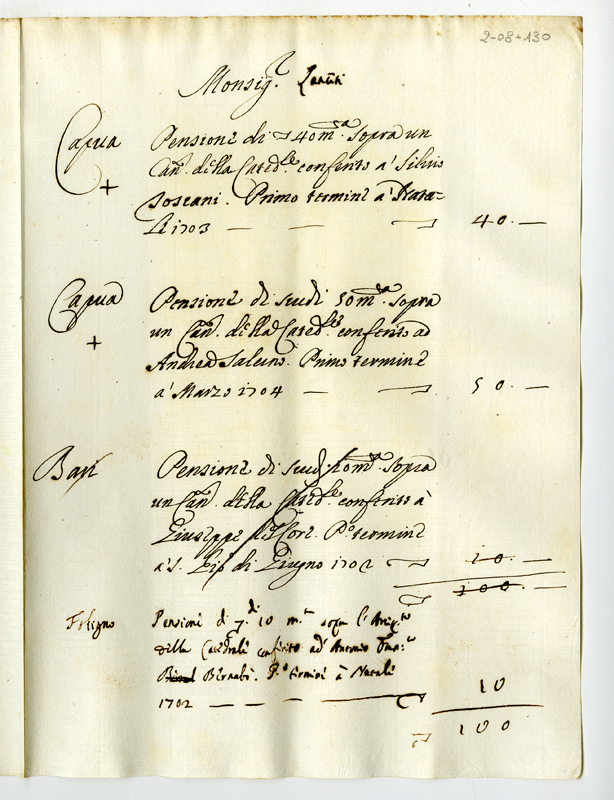 2-08-130
Monsig.r Zanuti
Capua
Pensione di 40 m.ta sopra un
Can.to della Cated.le conferito a' Silvio
Toscani. Primo termine a' Nata-
le 1703 — — 40. —
Capua
Pensione di scudi 50 m.ta sopra
un Can.to della Cated.le conferito ad
Andrea Salerno. Primo termine
a' Marzo 1704 — 50. —
Bari
Pensione di scudi 10 m.ta sopra
un Can.to della Cated.le conferito à
Giuseppe Po termine
a' S. di Giugno 1702 10. —
100. —
Foligno
Pensione di 10 m.ta sopra l'
della Catedrale conferito ad Antonio Fran.co
Bernabò. P.o termine à Natale
1702 — — — 10
100